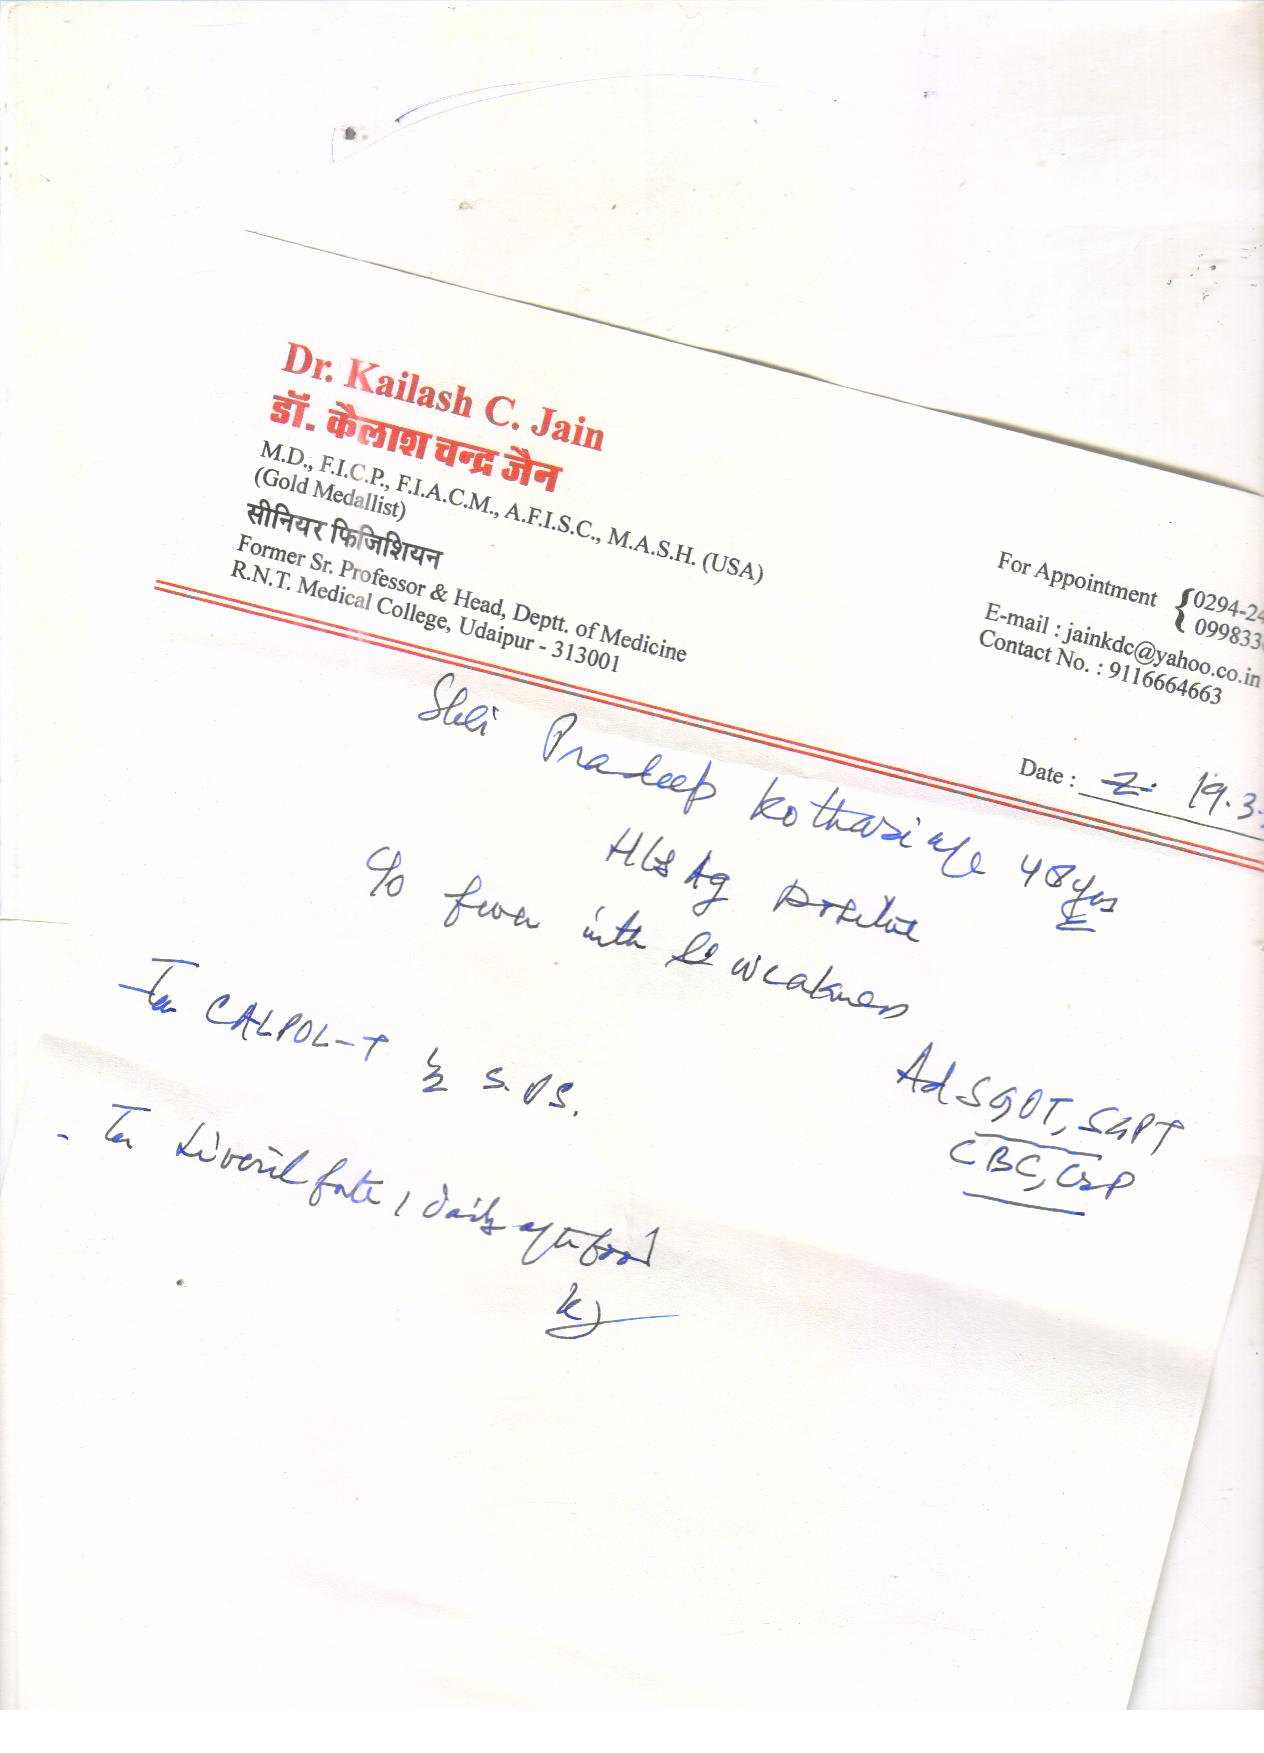 Dr. Kailash C. Jain
डॉ. कैलाश चन्द्र जैन
M.D., F.I.C.P., F.I.A.C.M., A.F.I.S.C., M.A.S.H. (USA)
(Gold Medallist)
सीनियर फिजिशियन
Former Sr. Professor & Head, Deptt. of Medicine
R.N.T. Medical College, Udaipur - 313001
For Appointment { 0294-24
099833
E-mail : jainkdc@yahoo.co.in
Contact No. : 9116664663
Date : 19.3.
Shri Pradeep Kothari age 48 yrs
HBsAg positive
c/o fever with weakness
Ad SGOT, SGPT
CBC, CRP
Tab CALPOL-T S.O.S.
- Tab Liveril forte 1 daily after food
KJ